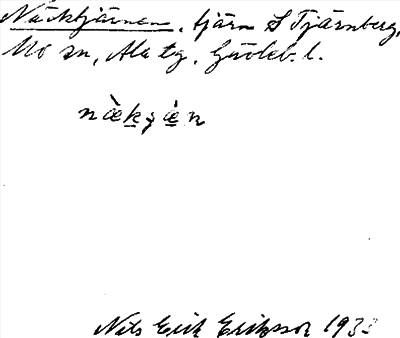 Näcktjärnen, tjärn S Tjärnberg,
Mo sn, Ala tg, Gävleb. l.
næ̀kʂæ̀n
Nils Erik Eriksson 1933